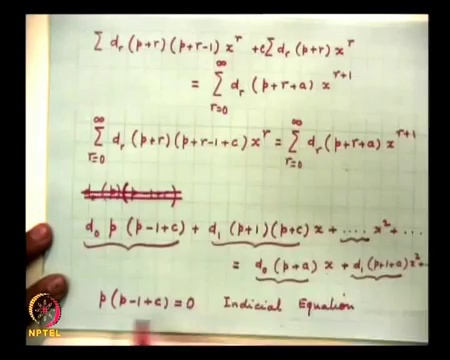 Σ d_r (p+r)(p+r-1) x^r + c Σ d_r (p+r) x^r
= Σ_{r=0}^{∞} d_r (p+r+a) x^{r+1}
Σ_{r=0}^{∞} d_r (p+r)(p+r-1+c) x^r = Σ_{r=0}^{∞} d_r (p+r+a) x^{r+1}
d_0 p (p-1+c) + d_1 (p+1)(p+c) x + .... x^2 + ...
= d_0 (p+a) x + d_1 (p+1+a) x^2 + ..
p(p-1+c) = 0 Indicial Equation
NPTEL